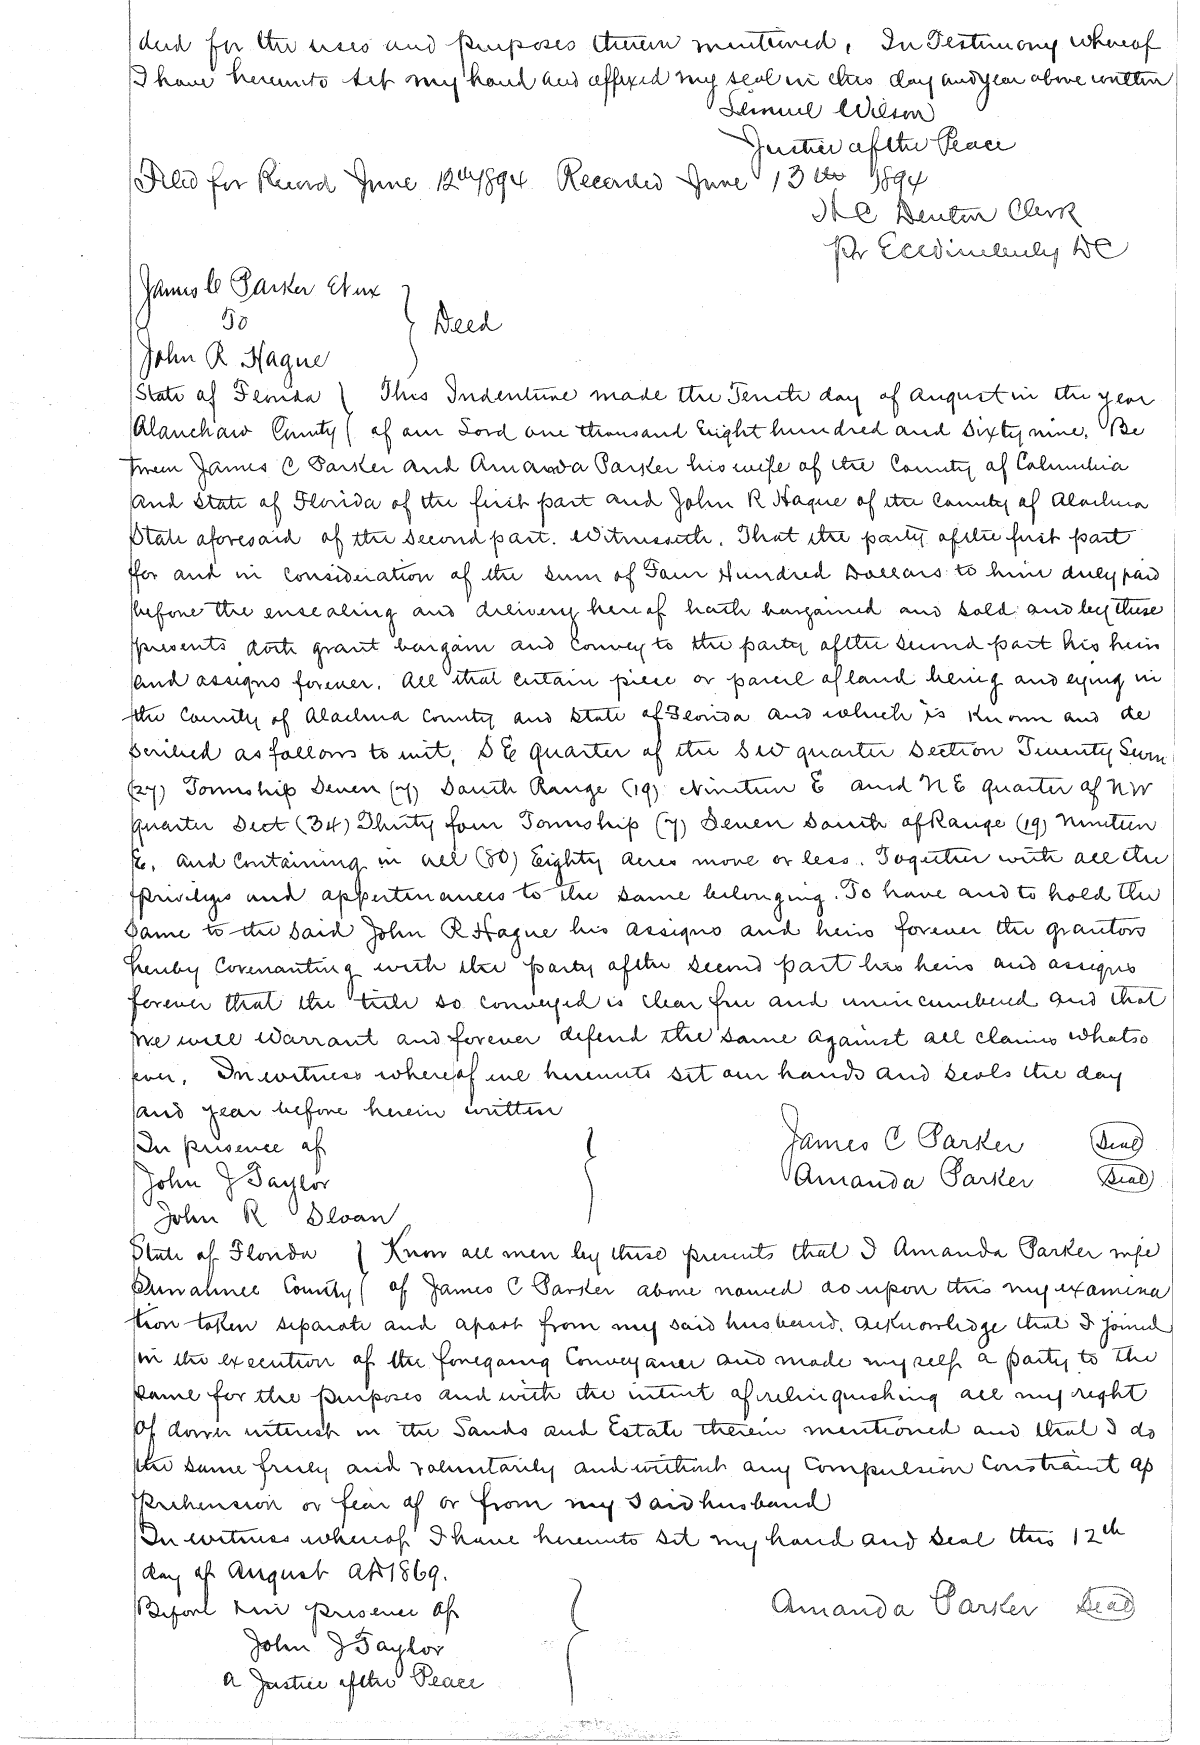 deed for the uses and purposes therein mentioned. In Testimony whereof
I have hereunto set my hand and affixed my seal in this day and year above written
Lemuel Wilson
Justice of the Peace
Filed for Record June 12th 1894 Recorded June 13th 1894
H C Denton Clerk
Pr E C Wimberly DC
James C Parker et ux
To
John R Hague
} Deed
State of Florida ( This Indenture made the Tenth day of August in the year
Alauchaw County ( of our Lord one thousand Eight hundred and Sixty nine, Be
tween James C Parker and Amanda Parker his wife of the County of Columbia
And State of Florida of the first part and John R Hague of the County of Alachua
State aforesaid of the second part. Witnesseth, That the party of the first part
for and in consideration of the sum of Four Hundred Dollars to him duly paid
before the ensealing and delivery hereof hath bargained and sold and by these
presents doth grant bargain and convey to the party of the second part his heirs
and assigns forever. All that certain piece or parcel of land being and lying in
the County of Alachua County and State of Florida and which is Known and de
scribed as follows to wit, S E quarter of the S W quarter Section Twenty Seven
(27) Township Seven (7) South Range (19) Nineteen E and N E quarter of N W
quarter Sect (34) Thirty four Township (7) Seven South of Range (19) Nineteen
E, and Containing in all (80) Eighty acres more or less. Together with all the
privileges and appertinances to the same belonging. To have and to hold the
same to the said John R Hague his assigns and heirs forever the grantors
hereby Covenanting with the party of the second part his heirs and assigns
forever that the title so conveyed is clear free and unincumbered and that
we will warrant and forever defend the same against all claims whatso
ever. In witness whereof we hereunto set our hands and seals the day
and year before herein written
In presence of
James C Parker (Seal)
John J Taylor
Amanda Parker (Seal)
John R Sloan
State of Florida ( Know all men by these presents that I Amanda Parker wife
Suwannee County ( of James C Parker above named do upon this my examina
tion taken separate and apart from my said husband. acknowledge that I joined
in the execution of the foregoing Conveyance and made myself a party to the
same for the purposes and with the intent of relinquishing all my right
of dower interest in the Lands and Estate therein mentioned and that I do
the same freely and voluntarily and without any Compulsion Constraint ap
prehension or fear of or from my said husband
In witness whereof I have hereunto set my hand and seal this 12th
day of August AD 1869.
Before & in presence of
Amanda Parker (Seal)
John J Taylor
a Justice of the Peace